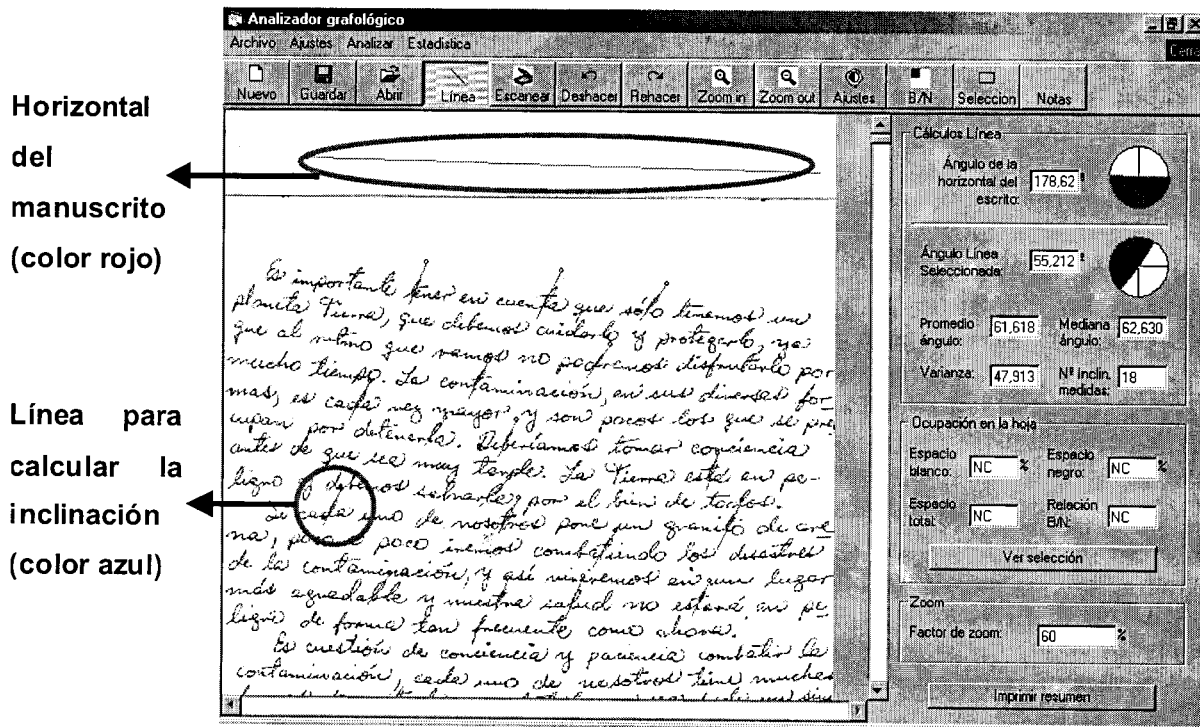 Horizontal
del
manuscrito
(color rojo)
Línea para
calcular la
inclinación
(color azul)
Analizador grafológico
Archivo Ajustes Analizar Estadistica
Cerra
Nuevo Guardar Abrir Línea Escanear Deshacer Rehacer Zoom in Zoom out Ajustes B/N Seleccion Notas
Es importante tener en cuenta que sólo tenemos un
planeta Tierra, que debemos cuidarlo y protegerlo, ya
que al ritmo que vamos no podremos disfrutarlo por
mucho tiempo. La contaminación, en sus diversas for-
mas, es cada vez mayor, y son pocos los que se pre
cupan por detenerla. Deberíamos tomar conciencia
antes de que sea muy tarde. La Tierra está en pe-
ligro y debemos salvarla, por el bien de todos.
Si cada uno de nosotros pone un granito de are
na, poco iremos combatiendo los desastres
de la contaminación, y así viviremos en un lugar
más agradable y nuestra salud no estará en pe
ligro de forma tan frecuente como ahora.
Es cuestión de conciencia y paciencia combatir la
contaminación, cada uno de nosotros tiene mucho
Cálculos Línea
Ángulo de la
horizontal del
escrito: 178,62 º
Ángulo Línea
Seleccionada: 55,212 º
Promedio
ángulo: 61,618
Mediana
ángulo: 62,630
Varianza: 47,913
Nº inclin.
medidas: 18
Ocupación en la hoja
Espacio
blanco: NC %
Espacio
negro: NC %
Espacio
total: NC
Relación
B/N: NC
Ver selección
Zoom
Factor de zoom: 60 %
Imprimir resumen